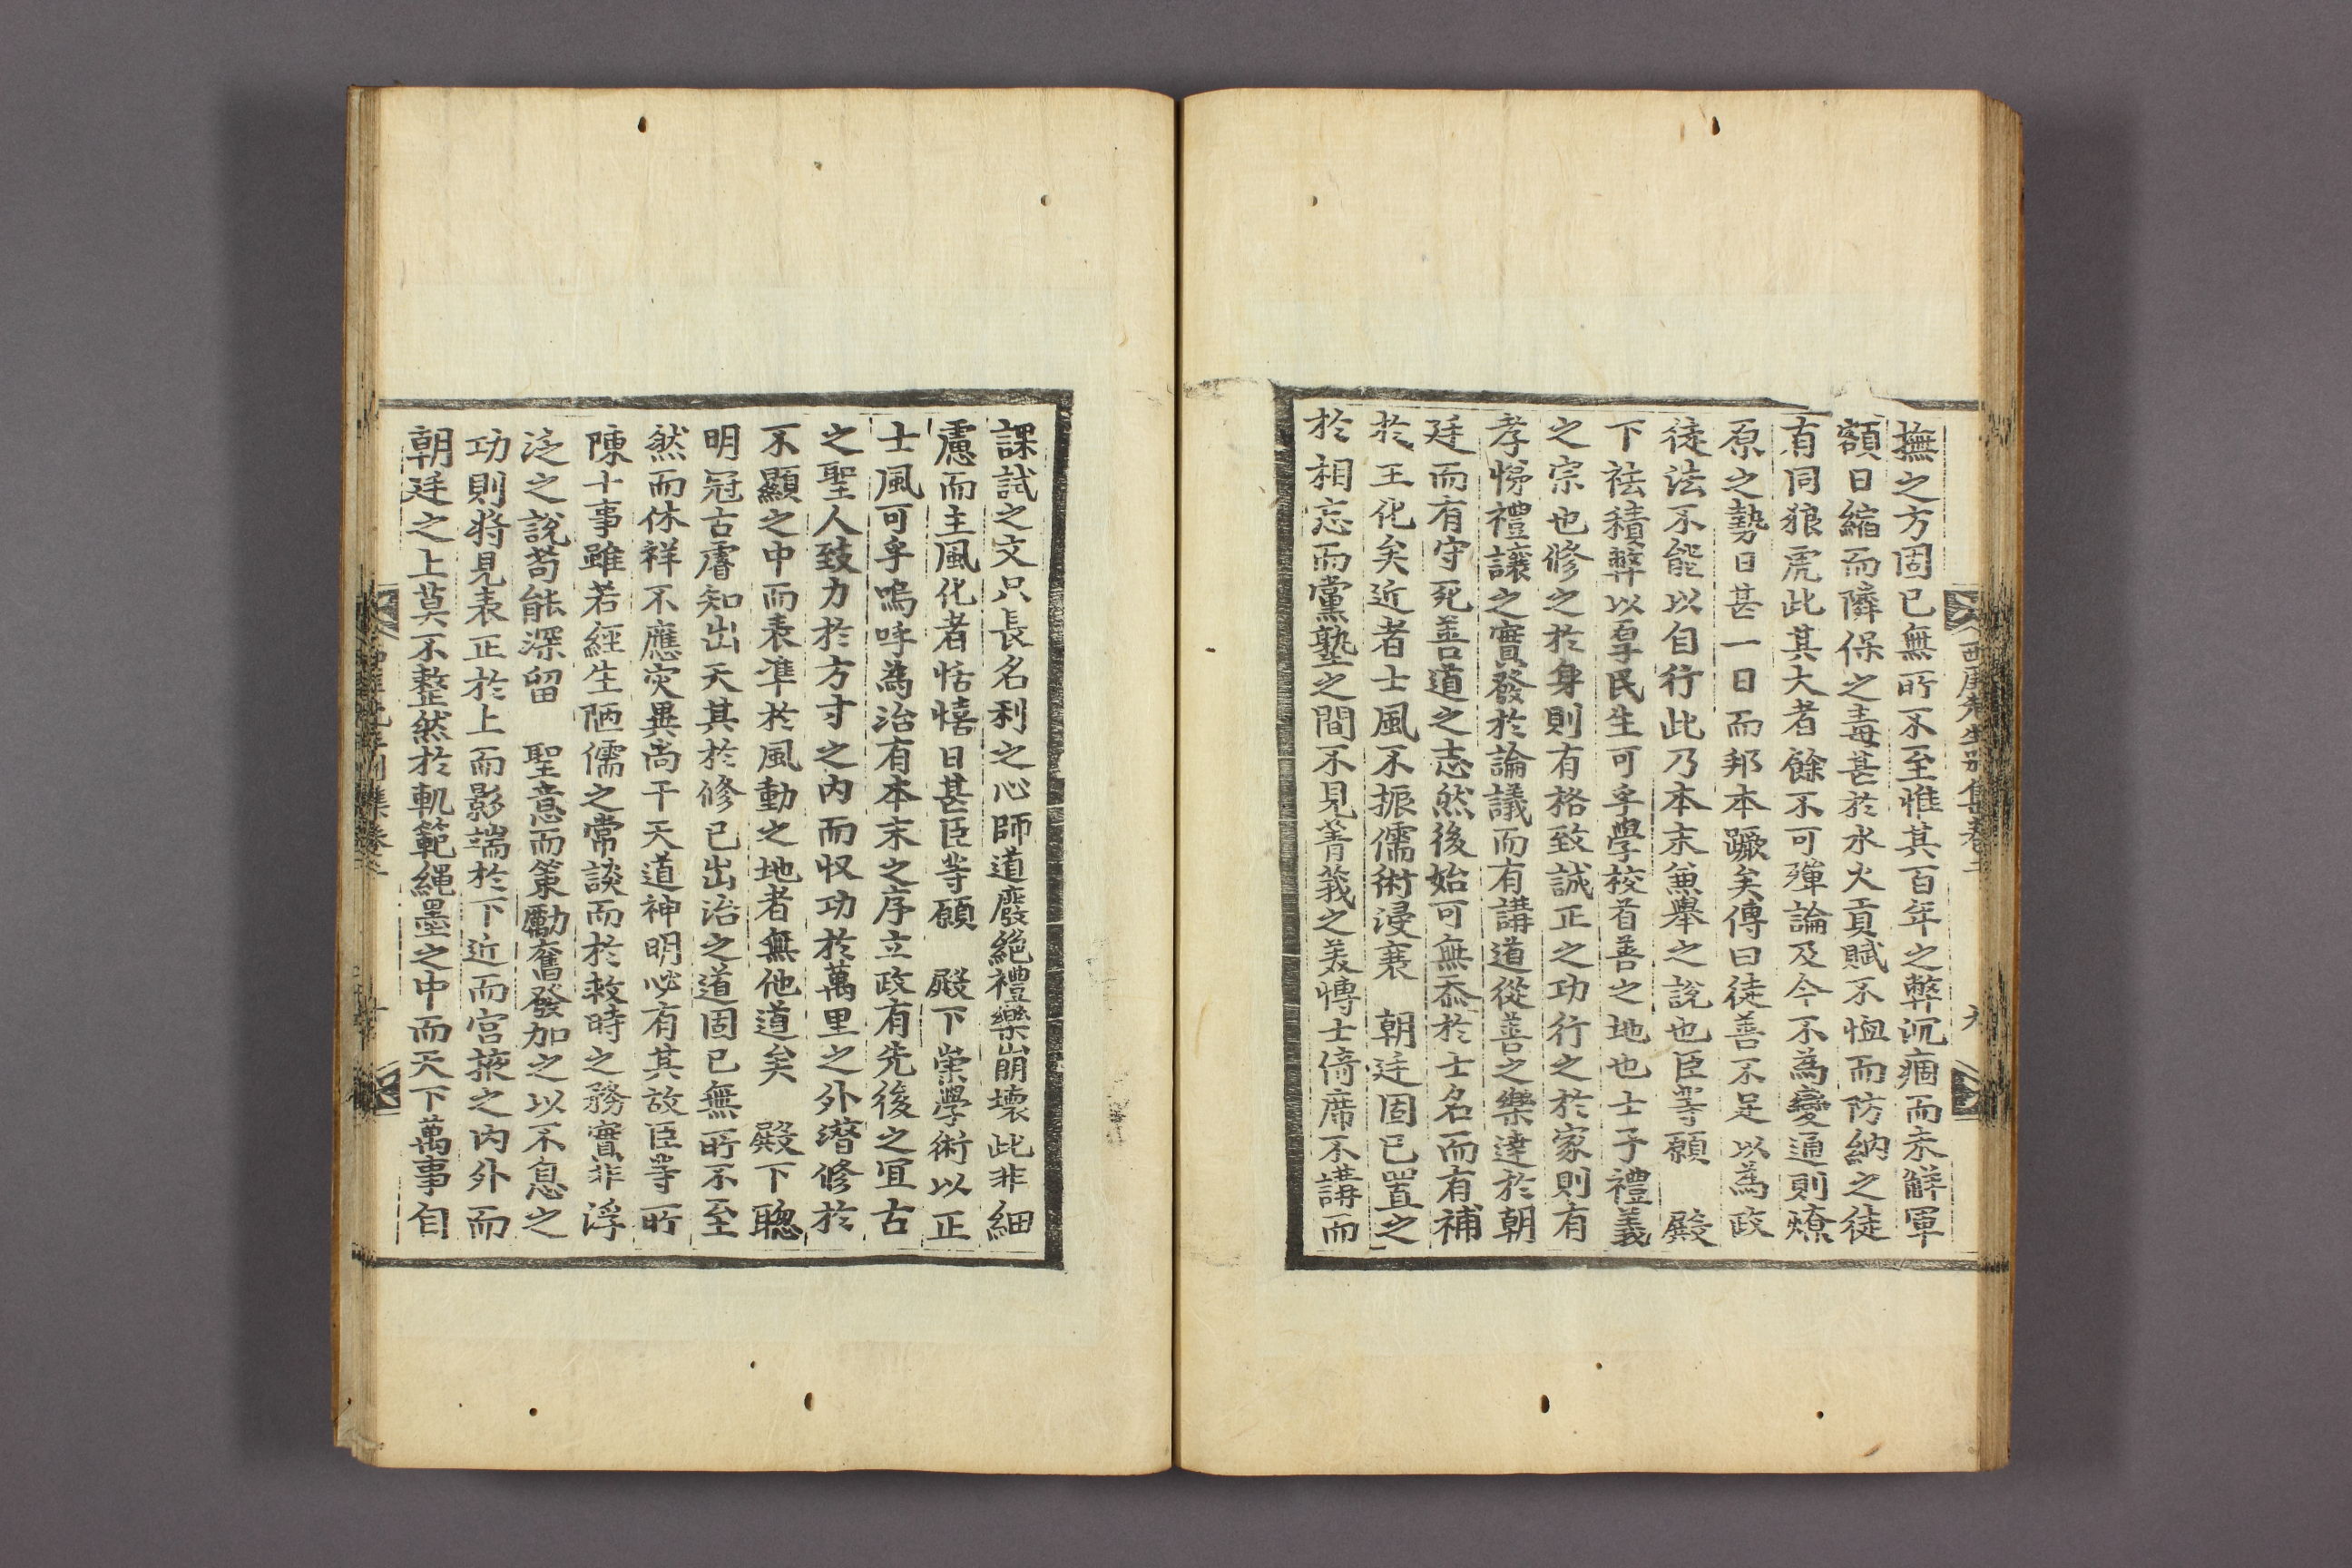 撫之方固已無所不至惟其百年之弊沉痼而未解軍
額日縮而隣保之毒甚於水火貢賦不恤而防納之徒
有同狼虎此其大者餘不可殫論及今不為變通則燎
原之勢日甚一日而邦本蹶矣傳曰徒善不足以為政
徒法不能以自行此乃本末兼舉之說也臣等願 殿
下祛積弊以孚民生可乎學校首善之地也士子禮義
之宗也修之於身則有格致誠正之功行之於家則有
孝悌禮讓之實發於論議而有講道從善之樂達於朝
廷而有守死善道之志然後始可無忝於士名而有補
於王化矣近者士風不振儒術浸衰 朝廷固已置之
於相忘而黨塾之間不見菁莪之美博士倚席不講而
西厓先生別集卷二
九
課試之文只長名利之心師道廢絕禮樂崩壞此非細
慮而主風化者恬憘日甚臣等願 殿下崇學術以正
士風可乎嗚呼為治有本末之序立政有先後之宜古
之聖人致力於方寸之內而収功於萬里之外潛修於
不顯之中而表準於風動之地者無他道矣 殿下聰
明冠古睿知出天其於修己出治之道固已無所不至
然而休祥不應灾異尚干天道神明必有其故臣等所
陳十事雖若經生陋儒之常談而於救時之務實非浮
泛之說苟能深留 聖意而策勵奮發加之以不息之
功則將見表正於上而影端於下近而宮掖之內外而
朝廷之上莫不整然於軌範繩墨之中而天下萬事自